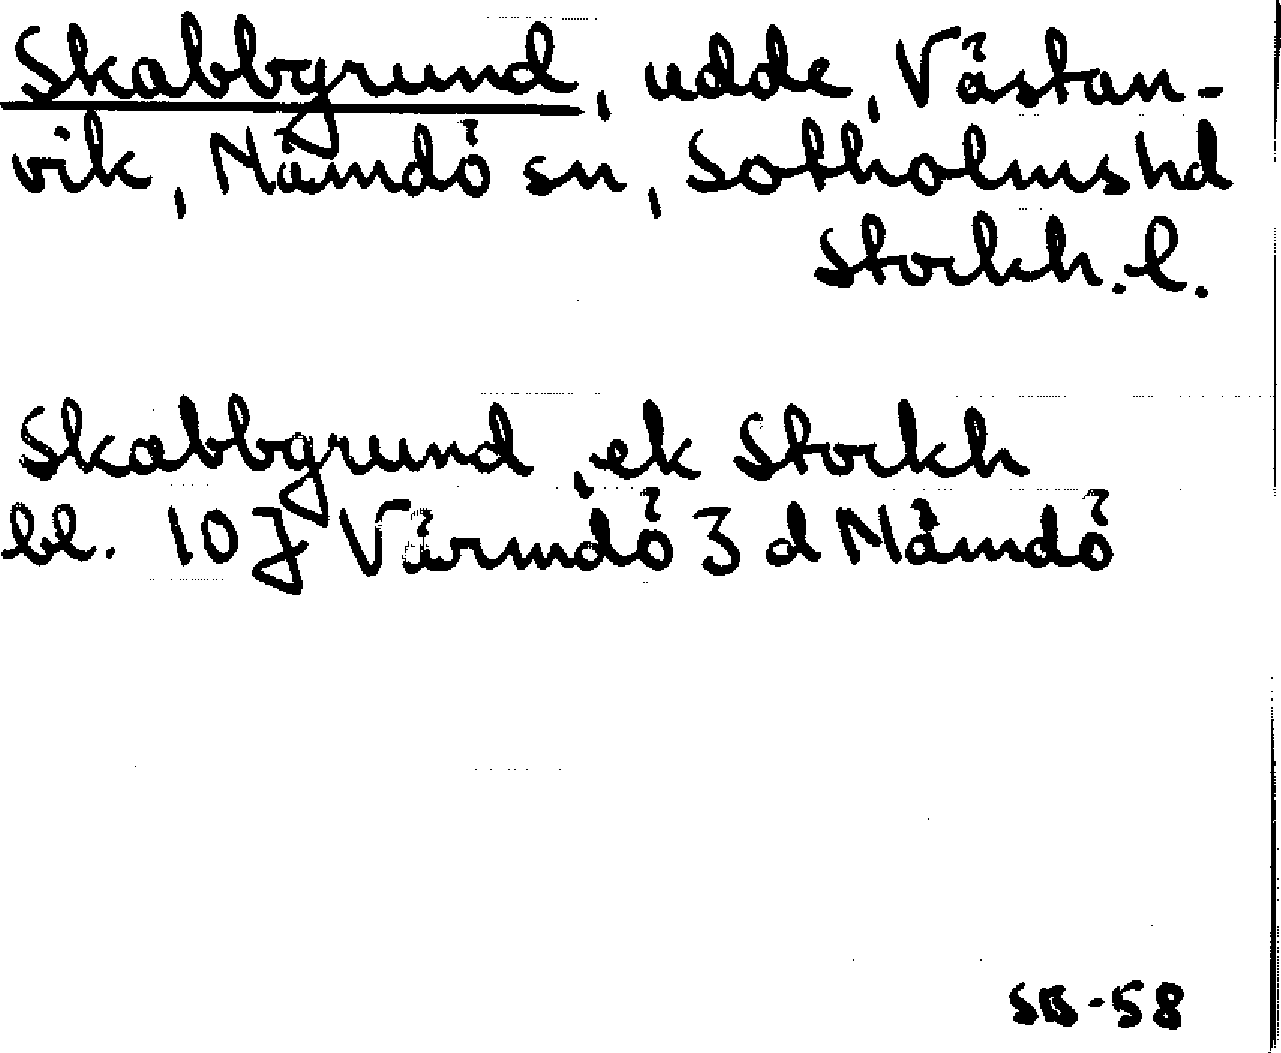 Skabbgrund, udde, Västan-
vik, Nämdö sn, Sotholms hd
Stockh. l.
Skabbgrund, ek Stockh
bl. 10 J Värmdö 3 d Nämdö
SB-58